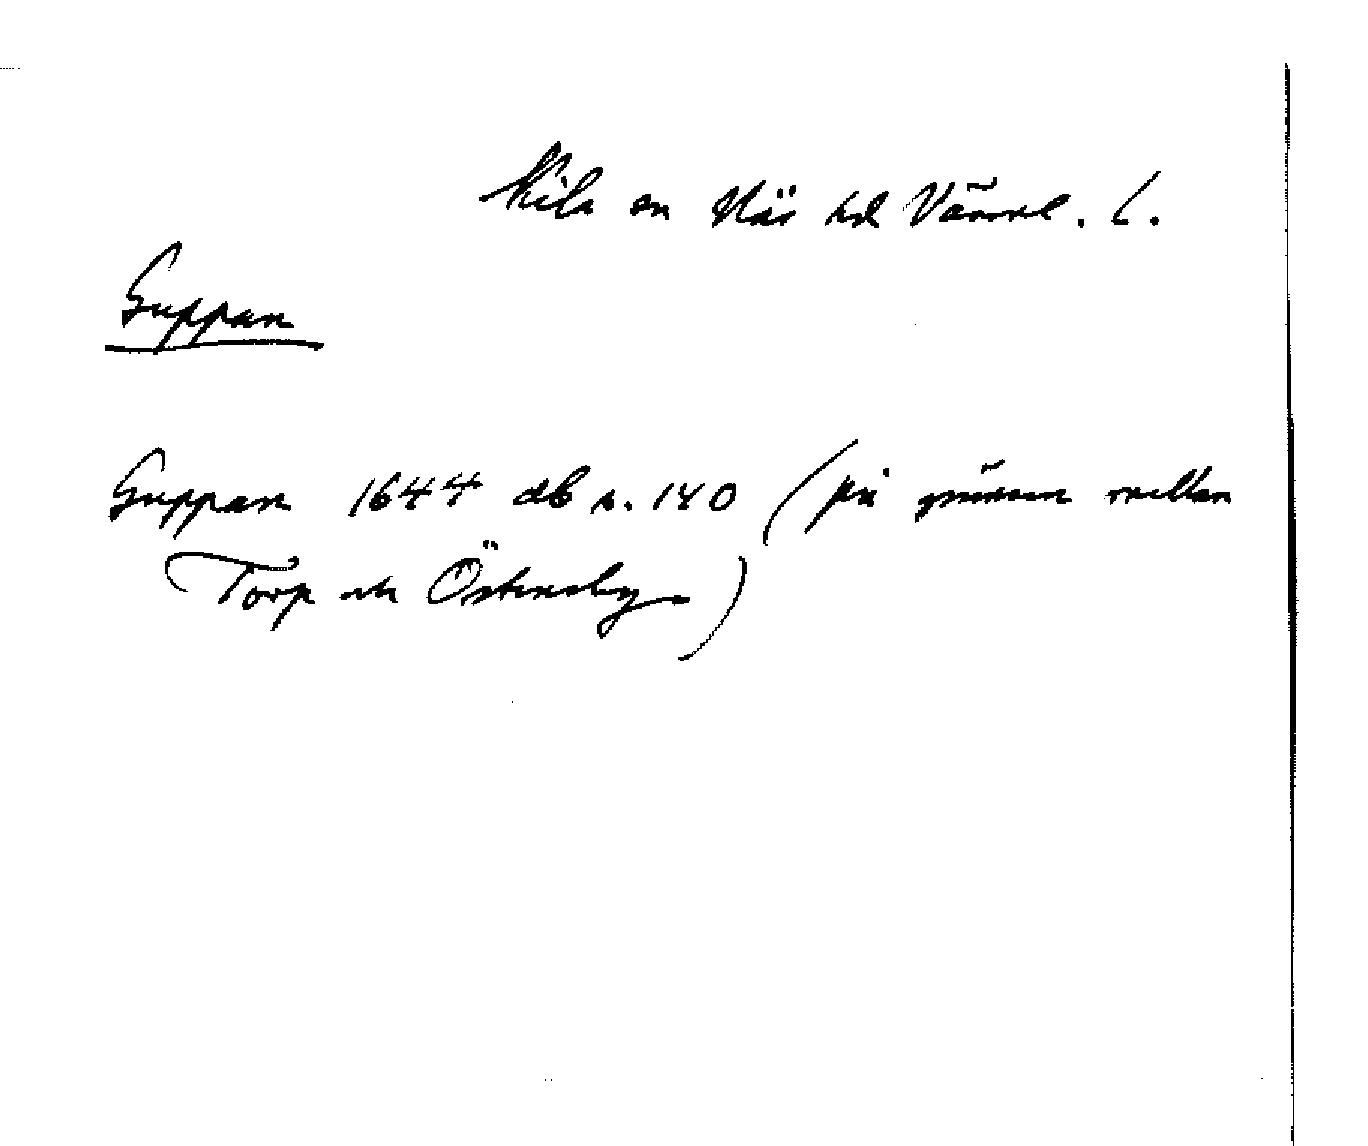 Kila sn Näs hd Värml. L.
Guppan
Guppan 1644 db s. 140 (på gränsen mellan
Torp och Östenby)